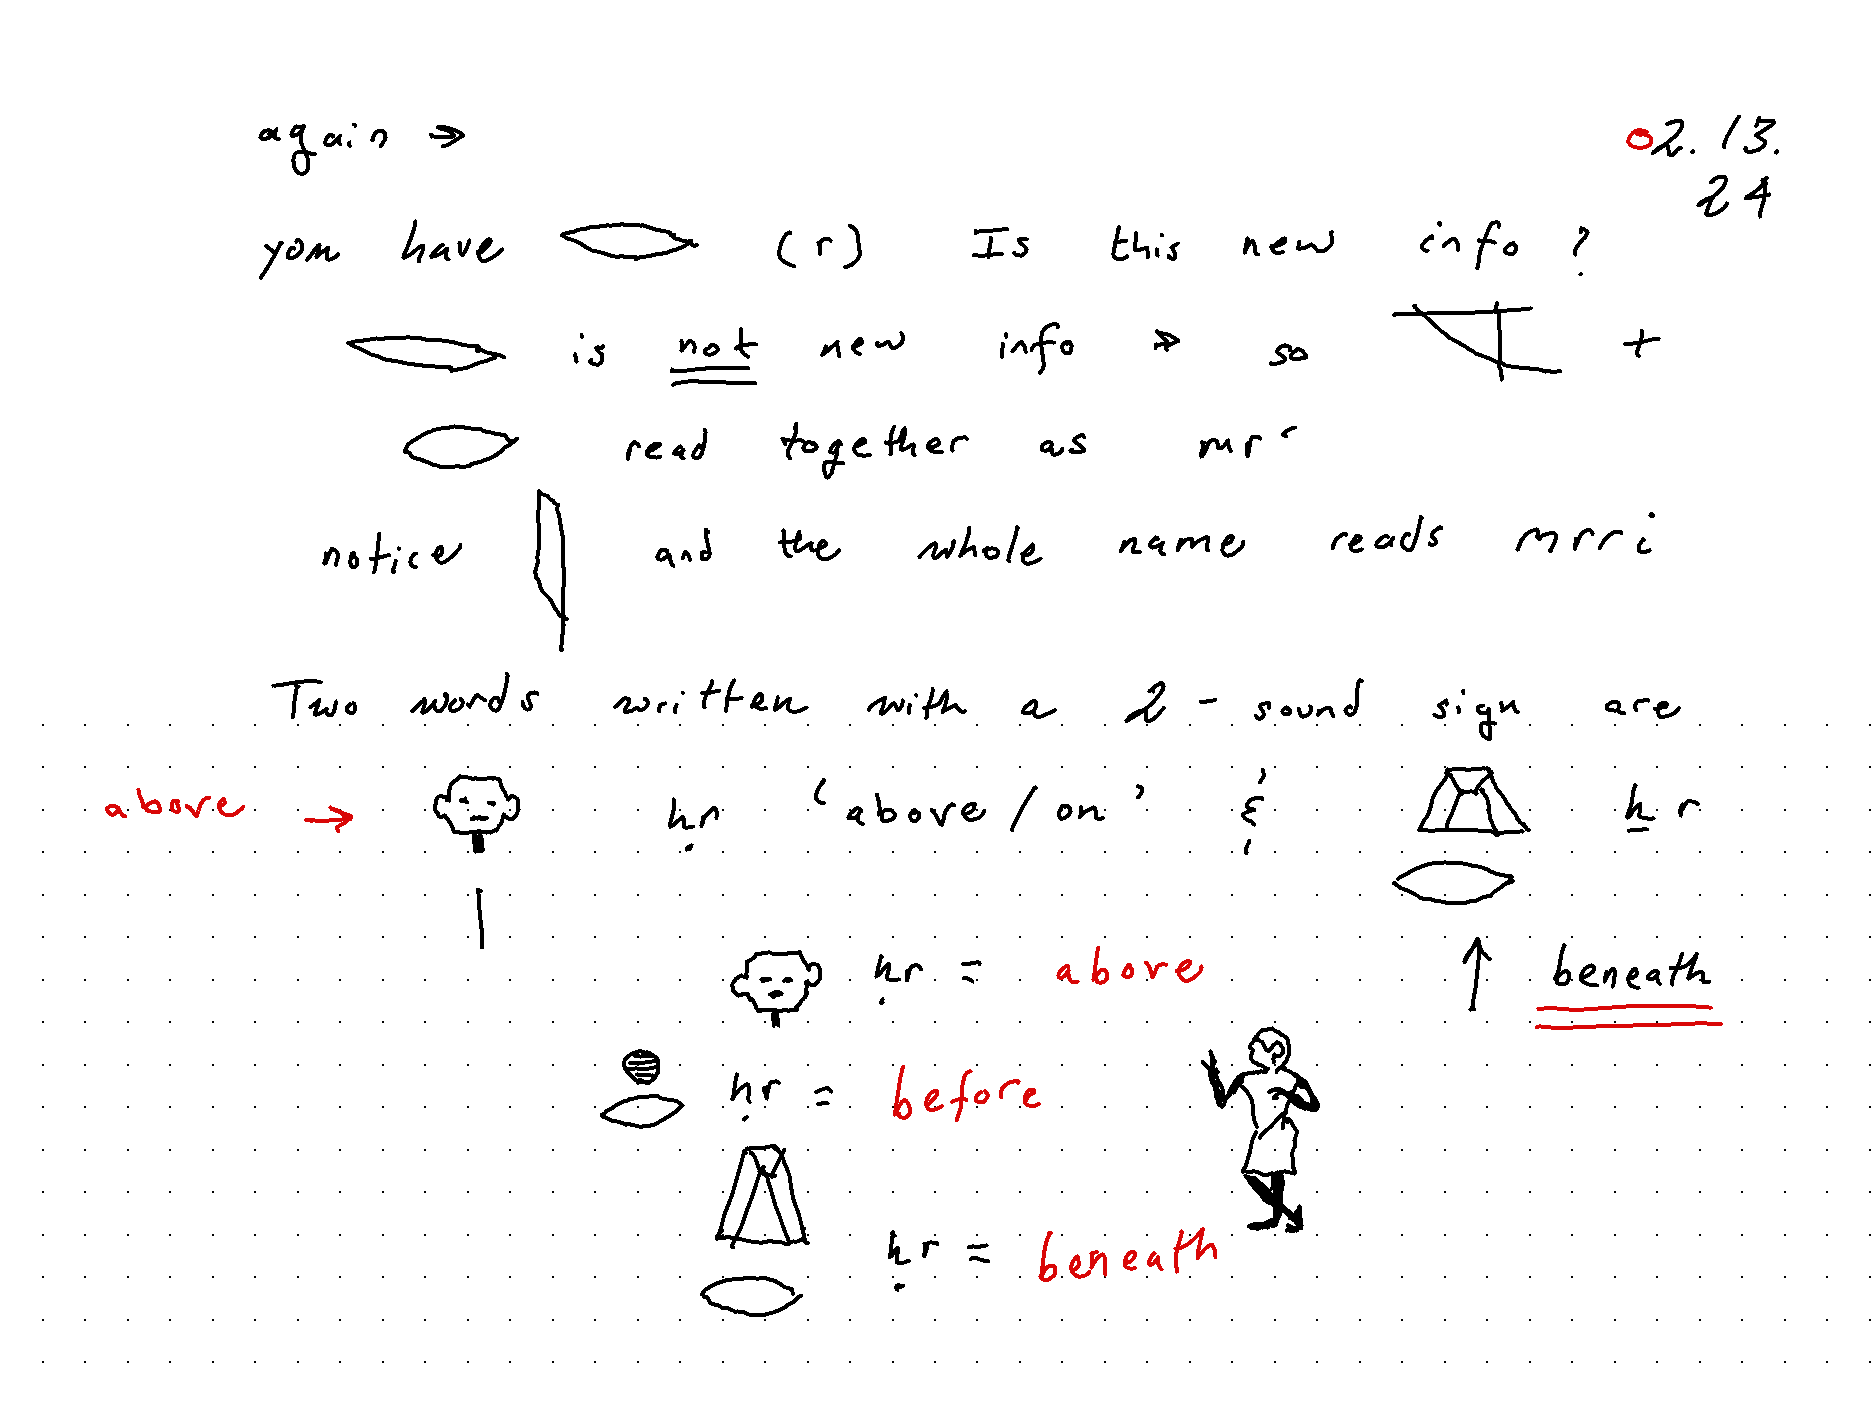 again → 02.13.
24
you have (r) Is this new info?
is not new info → so +
read together as mr
notice and the whole name reads mrri
Two words written with a 2-sound sign are
above → ḥr 'above/on' & ẖr
ḥr = above ↑ beneath
ḥr = before
ḥr = beneath